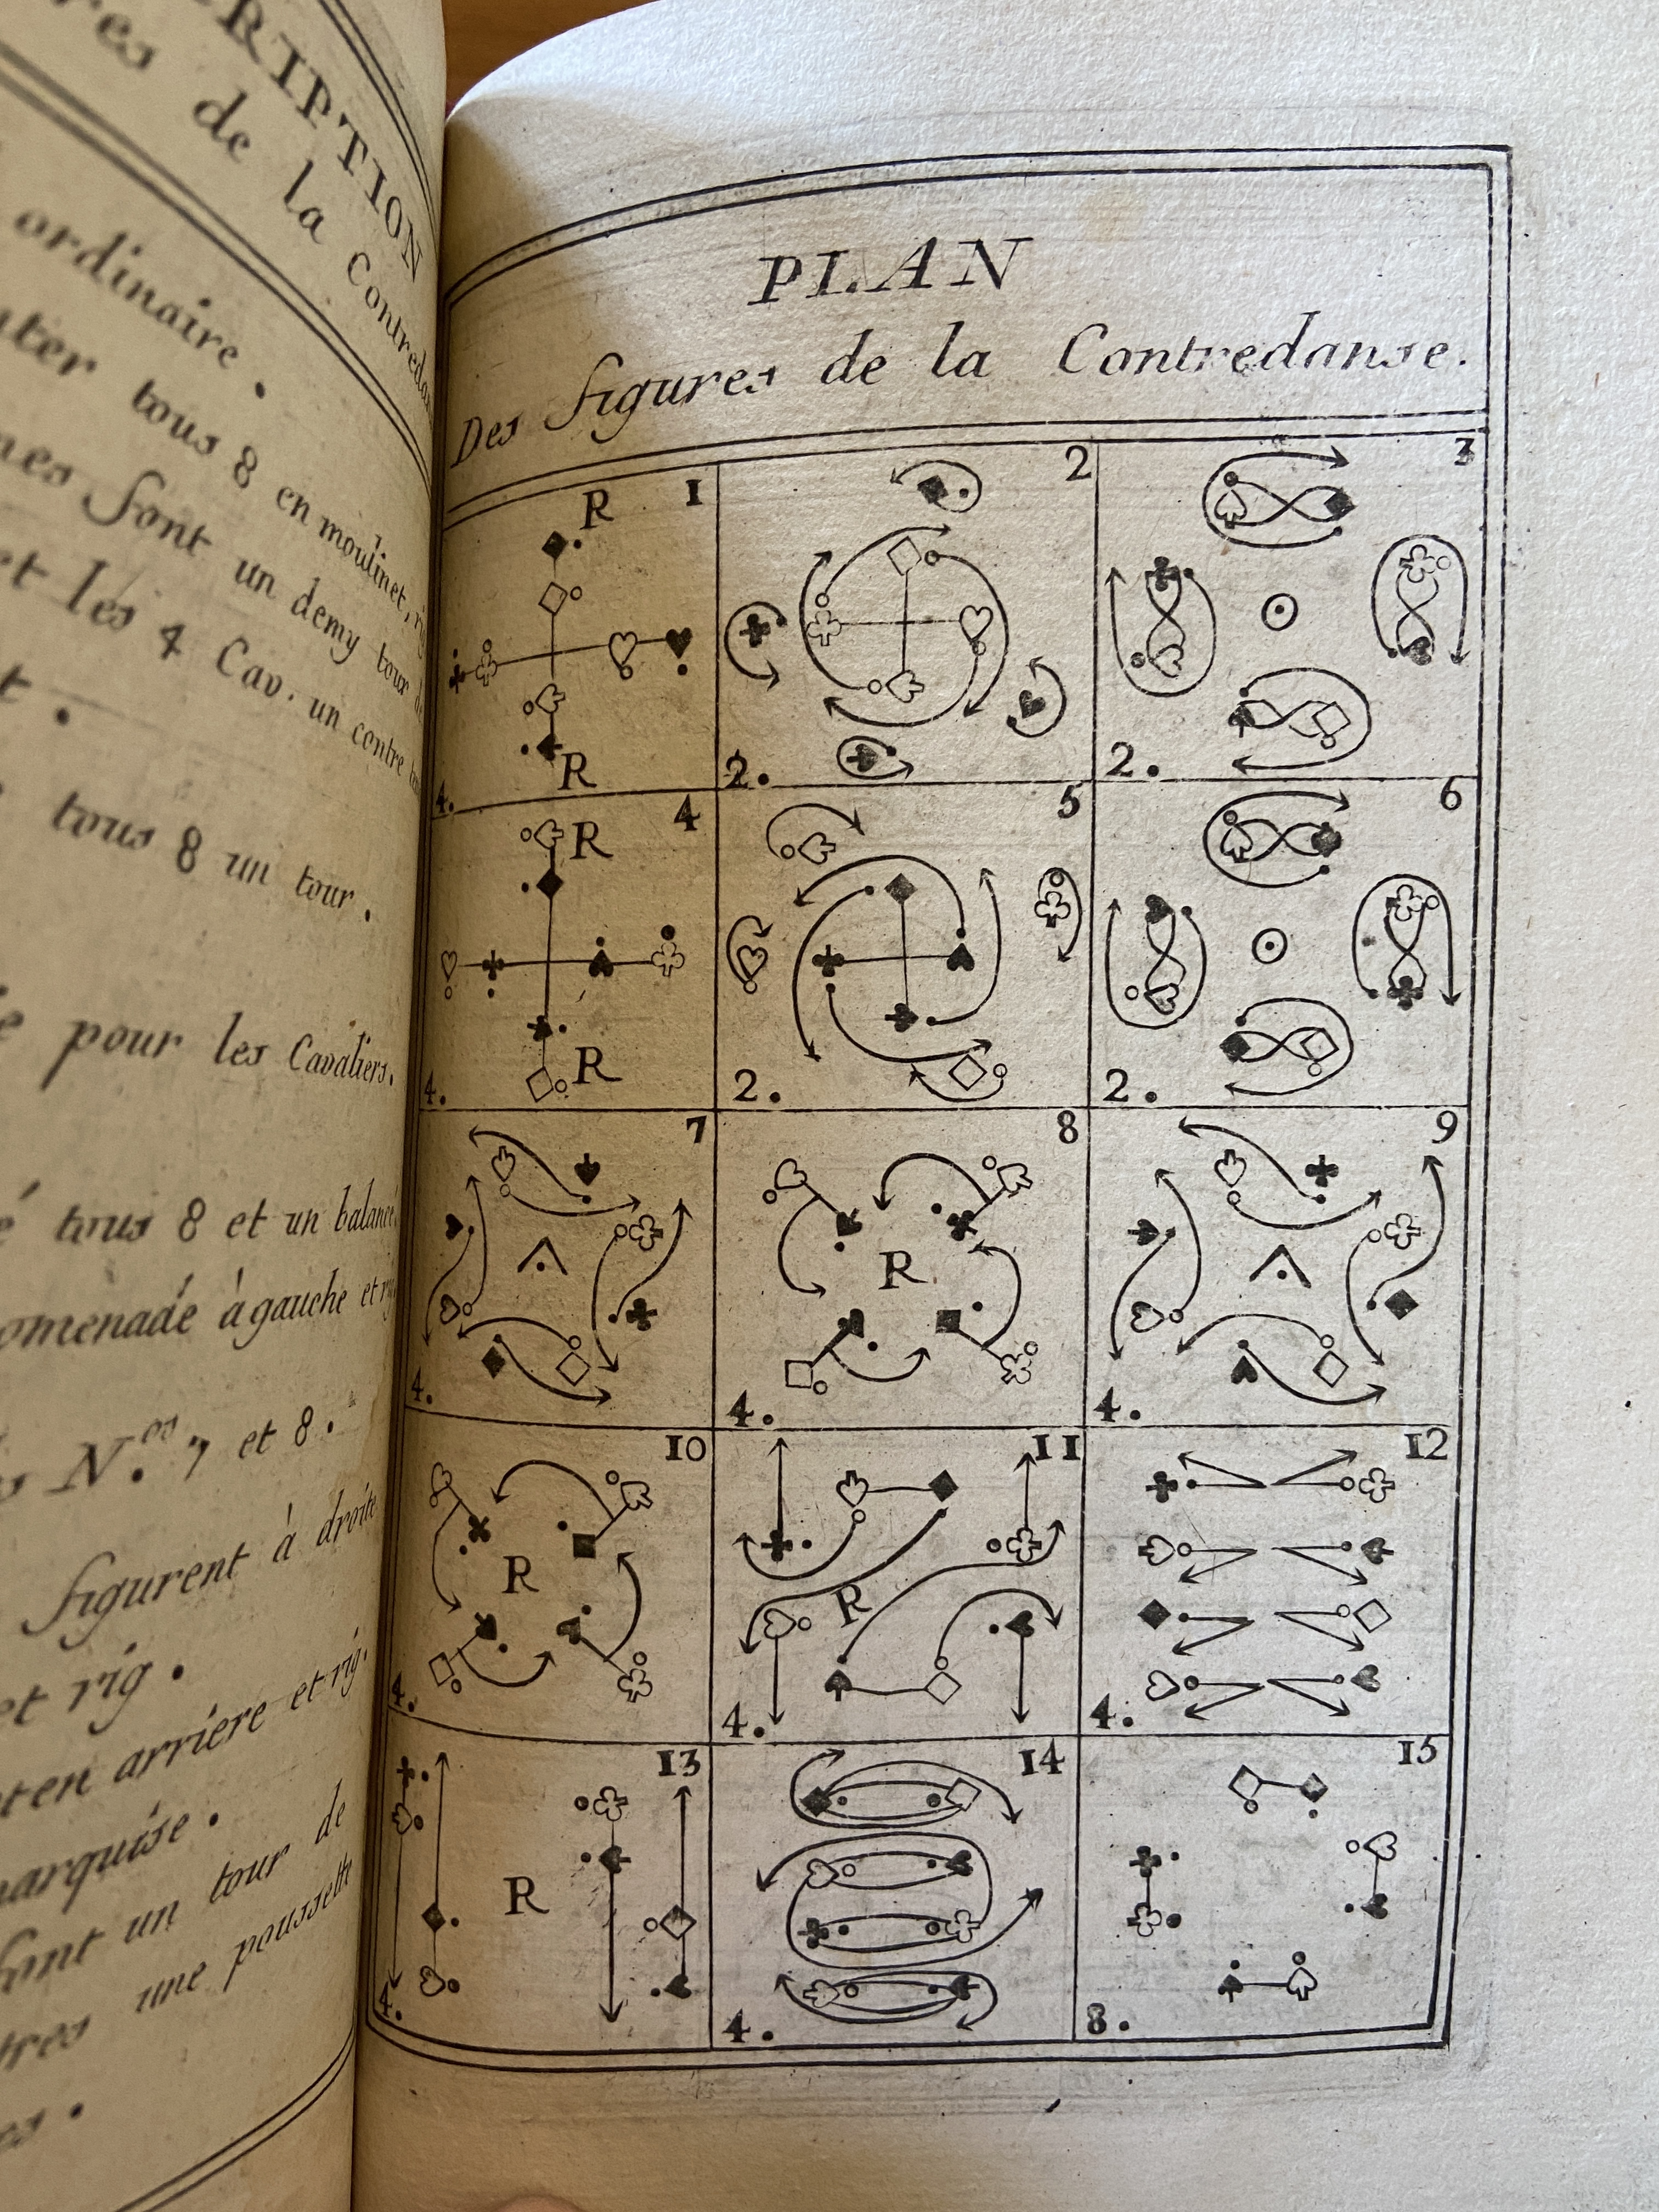 RIPTION
res de la Contredan
ordinaire.
ter tous 8 en moulinet,
nes font un demy tour
et les 4 Cav. un contre
t.
tous 8 un tour.
e pour les Cavaliers.
é tous 8 et un balancé
omenade à gauche et
N.os 7 et 8.
figurent à droite
et rig.
et en arriere et rig.
marquise.
font un tour de
tres une poussette
es.
PLAN
Des figures de la Contredanse.
1 2 3
R
R
4. 2. 2.
4 5 6
R
R
4. 2. 2.
7 8 9
R
4. 4. 4.
10 11 12
R R
4. 4. 4.
13 14 15
R
4. 4. 8.